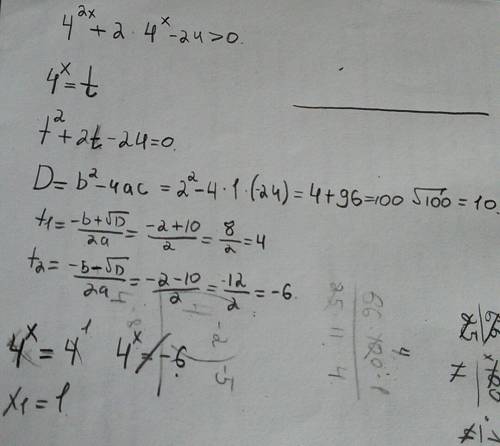 4^2x + 2 · 4^x - 24 > 0.
4^x = t
t^2 + 2t - 24 = 0.
D = b^2 - 4ac = 2^2 - 4 · 1 · (-24) = 4 + 96 = 100 √100 = 10
t1 = (-b + √D)/2a = (-2 + 10)/2 = 8/2 = 4
t2 = (-b - √D)/2a = (-2 - 10)/2 = -12/2 = -6.
4^x = 4^1 4^x ≠ -6
x1 = 1